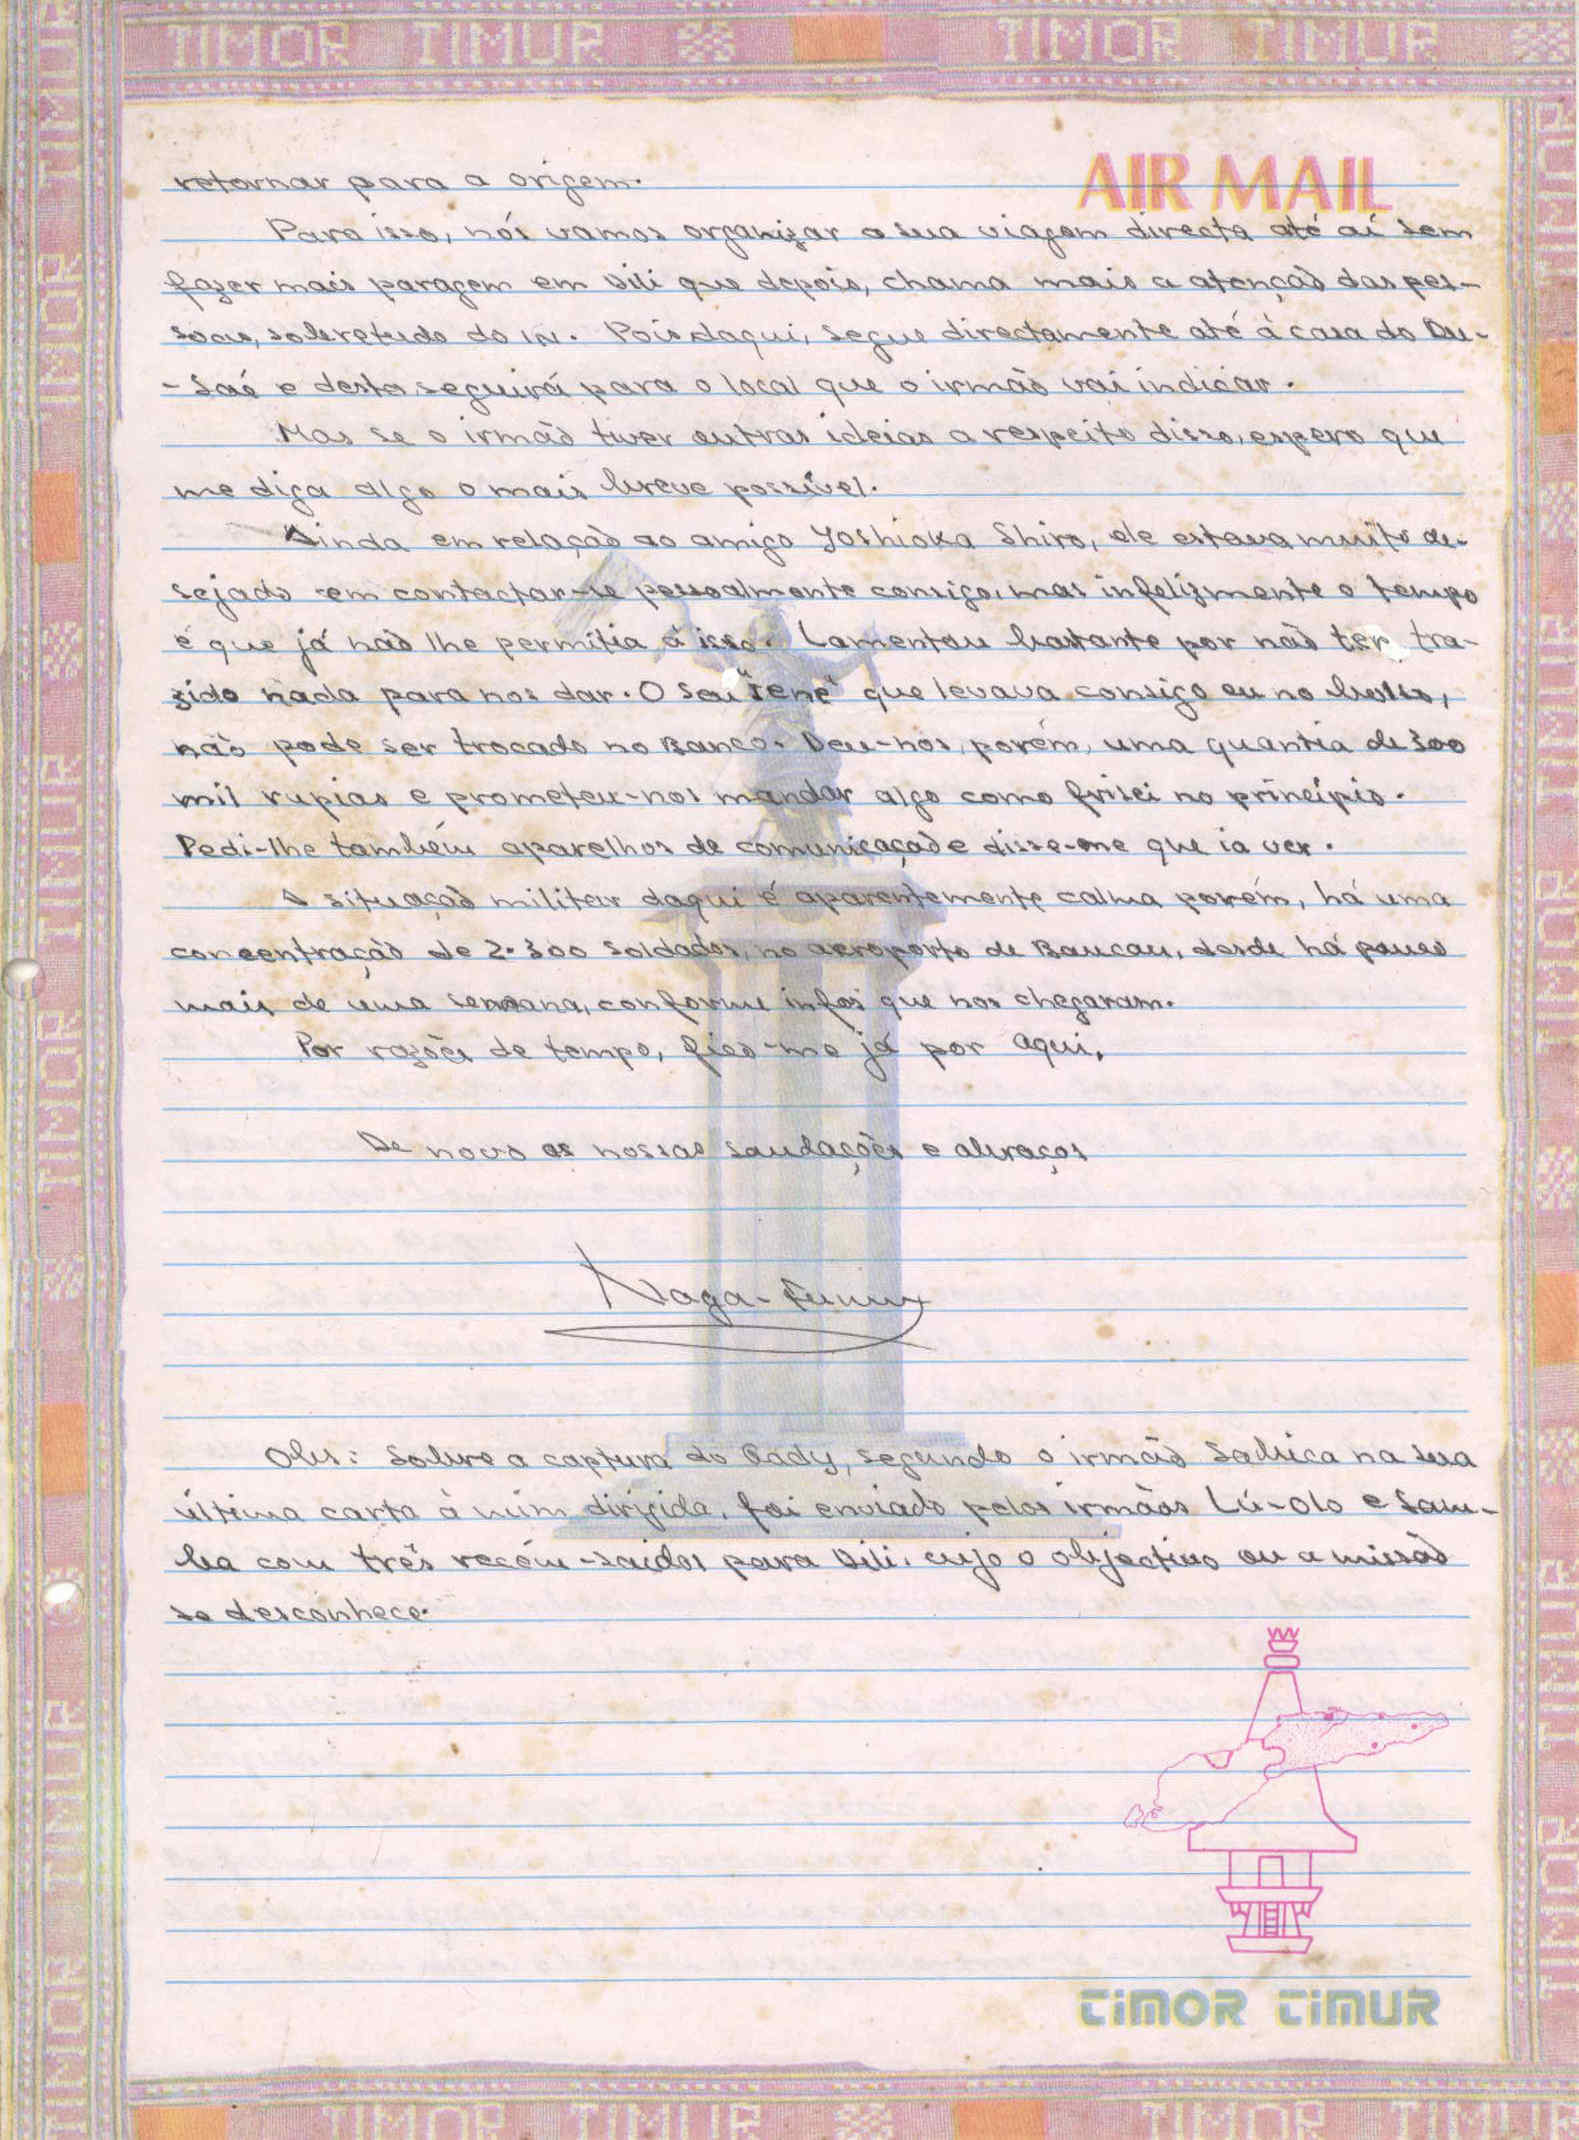 TIMOR TIMUR TIMOR TIMUR
AIR MAIL
retornar para a origem.
Para isso, nós vamos organizar a sua viagem directa até aí sem
fazer mais paragem em Dili que depois, chama mais a atenção das pes-
soas, sobretudo do IN. Pois daqui, segue directamente até à casa do Du-
-Saé e desta seguirá para o local que o irmão vai indicar.
Mas se o irmão tiver outras ideias a respeito disso, espero que
me diga algo o mais breve possível.
Ainda em relação ao amigo Yoshioka Shiro, ele estava muito de-
sejado em contactar-se pessoalmente consigo, mas infelizmente o tempo
é que já não lhe permitia à isso. Lamentou bastante por não ter tra-
zido nada para nos dar. O seu "Iene" que levava consigo ou no bolso,
não pode ser trocado no Banco. Deu-nos, porém, uma quantia de 300
mil rupias e prometeu-nos mandar algo como frisei no princípio.
Pedi-lhe também aparelhos de comunicação e disse-me que ia ver.
A situação militar daqui é aparentemente calma porém, há uma
concentração de 2.300 soldados, no aeroporto de Baucau, desde há pouco
mais de uma semana, conforme infos que nos chegaram.
Por razões de tempo, fico-me já por aqui.
De novo as nossas saudações e abraços
Naga-Funu
Obs: Sobre a captura do Gady, segundo o irmão Sabica na sua
última carta à mim dirigida, foi enviado pelos irmãos Lú-Olo e Sam-
ba com três recém-saidos para Dili, cujo o objectivo ou a missão
se desconhece.
TIMOR TIMUR
TIMOR TIMUR TIMOR TIMUR